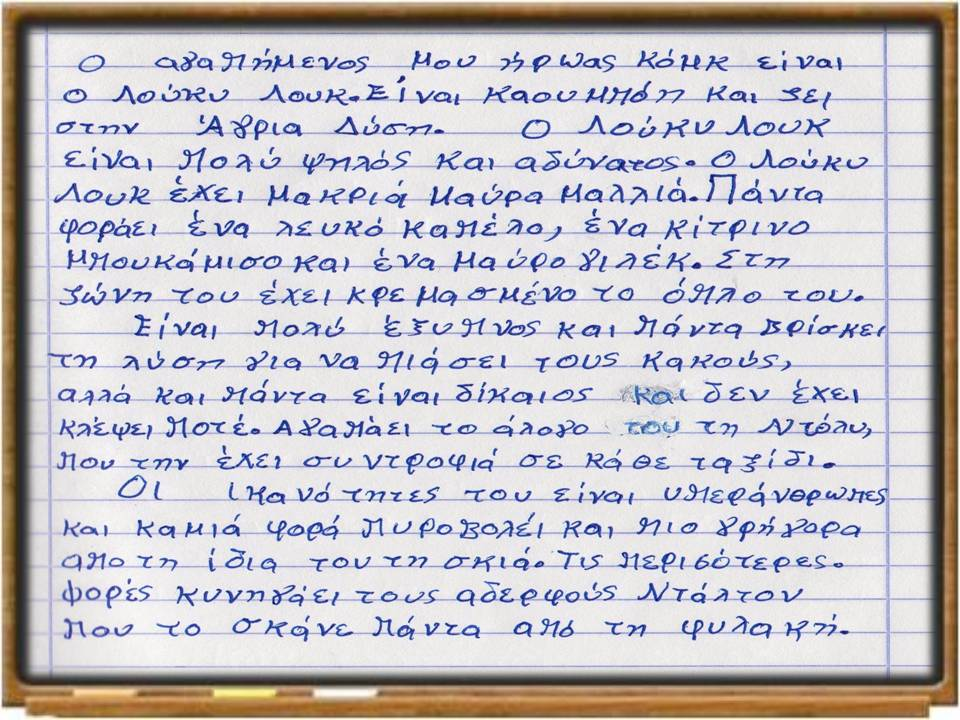 Ο αγαπήμενος μου ήρωας κόμκ είναι
ο Λούκυ Λουκ. Είναι καουμπόη και ζει
στην Άγρια Δύση. Ο Λούκυ Λουκ
είναι πολύ ψηλός και αδύνατος. Ο Λούκυ
Λουκ έχει μακριά μαύρα μαλλιά. Πάντα
φοράει ένα λευκό καπέλο, ένα κίτρινο
μπουκάμισο και ένα μαύρο γιλέκ. Στη
ζώνη του έχει κρεμασμένο το όπλο του.
Είναι πολύ έξυπνος και πάντα βρίσκει
τη λύση για να πιάσει τους κακούς,
αλλά και πάντα είναι δίκαιος και δεν έχει
κλέψει ποτέ. Αγαπάει το άλογο του τη Ντόλυ,
που την έχει συντροφιά σε κάθε ταξίδι.
Οι ικανότητες του είναι υπεράνθρωπες
και καμιά φορά πυροβολεί και πιο γρήγορα
απο τη ίδια του τη σκιά. Τις περισότερες.
φορές κυνηγάει τους αδερφούς Ντάλτον
που το σκάνε πάντα από τη φυλακή.